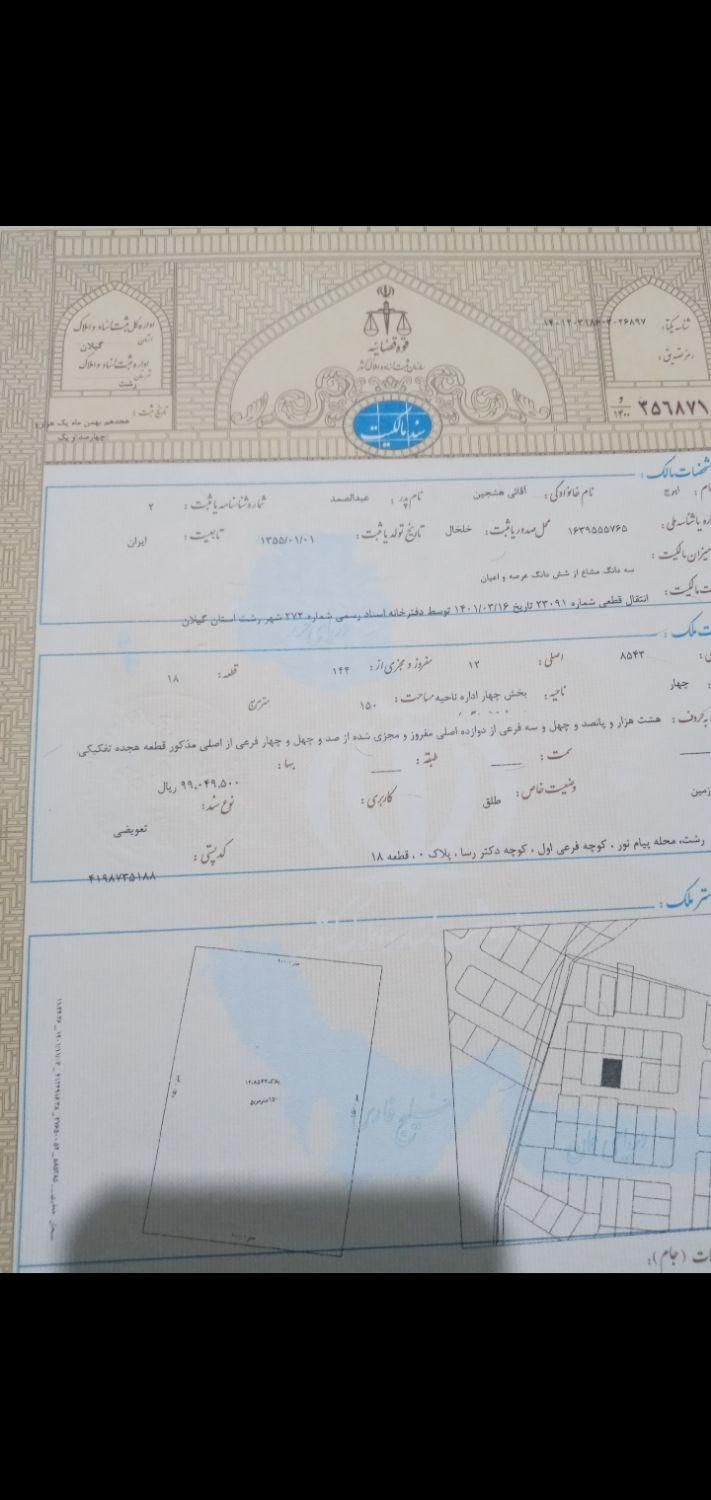 قوه قضائیه
سازمان ثبت اسناد و املاک کشور
اداره کل ثبت اسناد و املاک
استان گیلان
اداره ثبت اسناد و املاک
رشت
تاریخ ثبت :
هجدهم بهمن ماه یک هزار و
چهارصد و یک
شناسه یکتا:
رمز تصدیق:
۳۵۶۸۷۱ و ۱۴۰۰
سند مالکیت
مشخصات مالک :
ایرج نام خانوادگی : آقائی هشجین نام پدر : عبدالصمد شماره شناسنامه یا ثبت : ۲
۱۶۳۹۵۵۵۷۶۵ محل صدور یا ثبت : خلخال تاریخ تولد یا ثبت : ۱۳۵۵/۰۱/۰۱ تابعیت : ایران
میزان مالکیت : سه دانگ مشاع از شش دانگ عرصه و اعیان
انتقال قطعی شماره ۲۳۰۹۱ تاریخ ۱۴۰۱/۰۳/۱۶ توسط دفترخانه اسناد رسمی شماره ۲۷۲ شهر رشت استان گیلان
ملک :
۸۵۴۳ اصلی : ۱۲ مفروز و مجزی از : ۱۴۴ قطعه : ۱۸
چهار ناحیه : بخش چهار اداره ناحیه مساحت : ۱۵۰ مترمربع
به حروف : هشت هزار و پانصد و چهل و سه فرعی از دوازده اصلی مفروز و مجزی شده از صد و چهل و چهار فرعی از اصلی مذکور قطعه هجده تفکیکی
سمت : طبقه : بها : ۹۹,۰۴۹,۵۰۰ ریال
زمین وضعیت خاص : طلق کاربری : نوع سند : تعویضی
رشت، محله پیام نور ، کوچه فرعی اول ، کوچه دکتر رسا ، پلاک ۰ ، قطعه ۱۸ کد پستی : ۴۱۹۸۷۳۵۱۸۸
ملک :
پلاک ۱۲/۸۵۴۳
۱۵۰ مترمربع
خلیج فارس
دریای عمان
(جام):